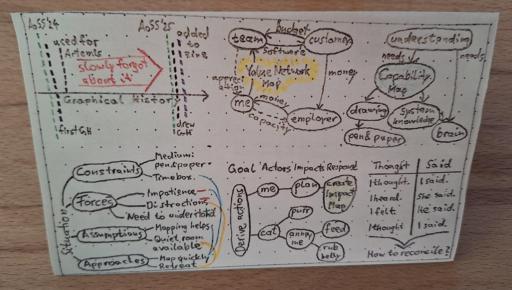 AoSS'24
AoSS'25
used for
Artemis
added to
slowly forgot
about it
Graphical History
first GH
drew
GH
team
Budget
customer
Software
Value Network
Map
money
me
money
capacity
employer
understanding
needs
needs
Capability
Map
drawing
system
knowledge
pen & paper
brain
Situation
Constraints
Medium:
pen&paper
Timebox
Forces
Impatience
Distractions
Need to understand
Assumptions
Mapping helps
Quiet room
available
Approaches
Map quickly
Retreat
Goal Actors Impacts Respond
Derive actions
me
plan
create
Impact
Map
cat
purr
annoy
me
feed
rub
belly
Thought
Said
I thought.
I said.
I heard.
She said.
I felt
He said.
I thought
I said.
How to reconcile?